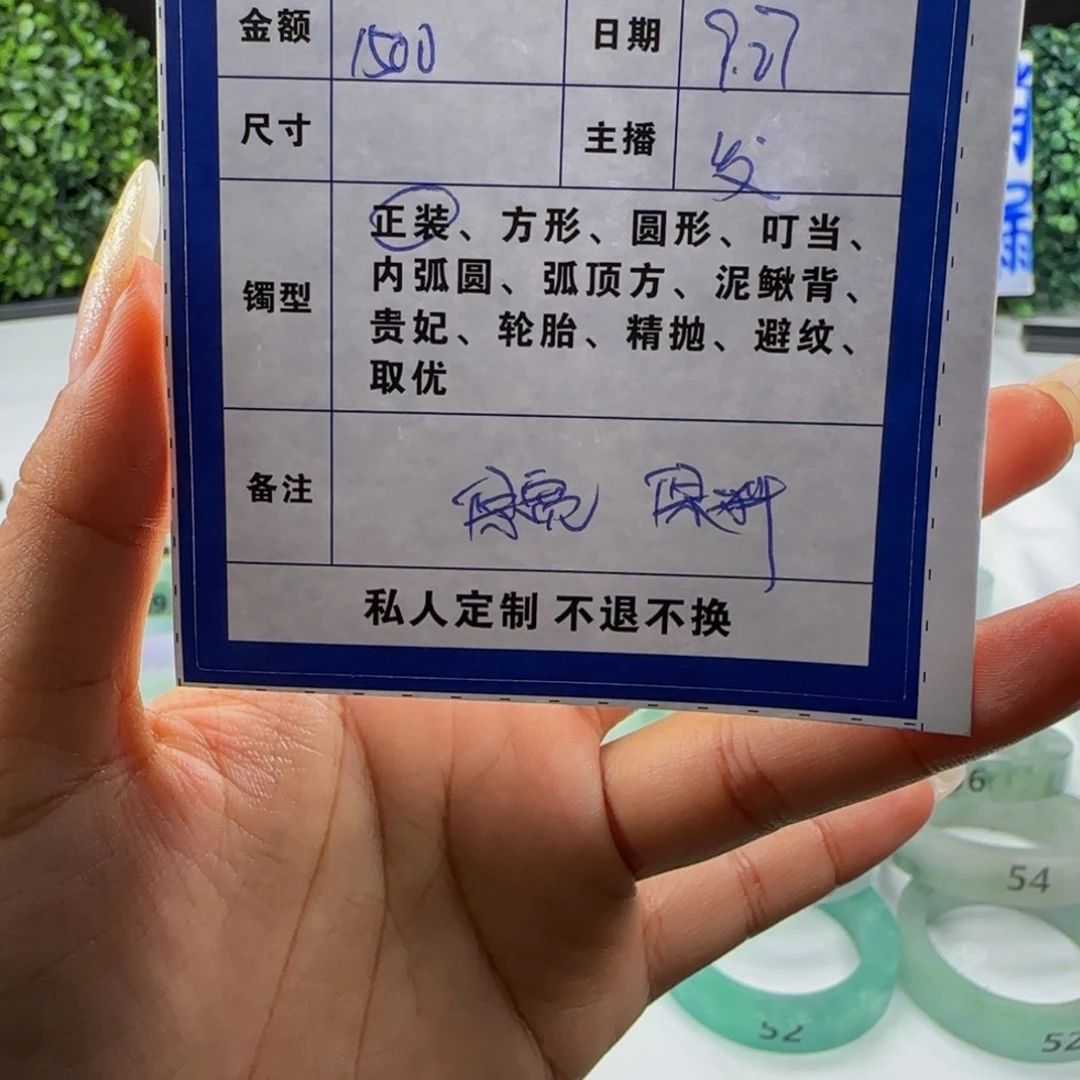 金额 1500 日期 9.27
尺寸 主播
镯型 正装、方形、圆形、叮当、
内弧圆、弧顶方、泥鳅背、
贵妃、轮胎、精抛、避纹、
取优
备注 保宽 保料
私人定制 不退不换
54
52
52